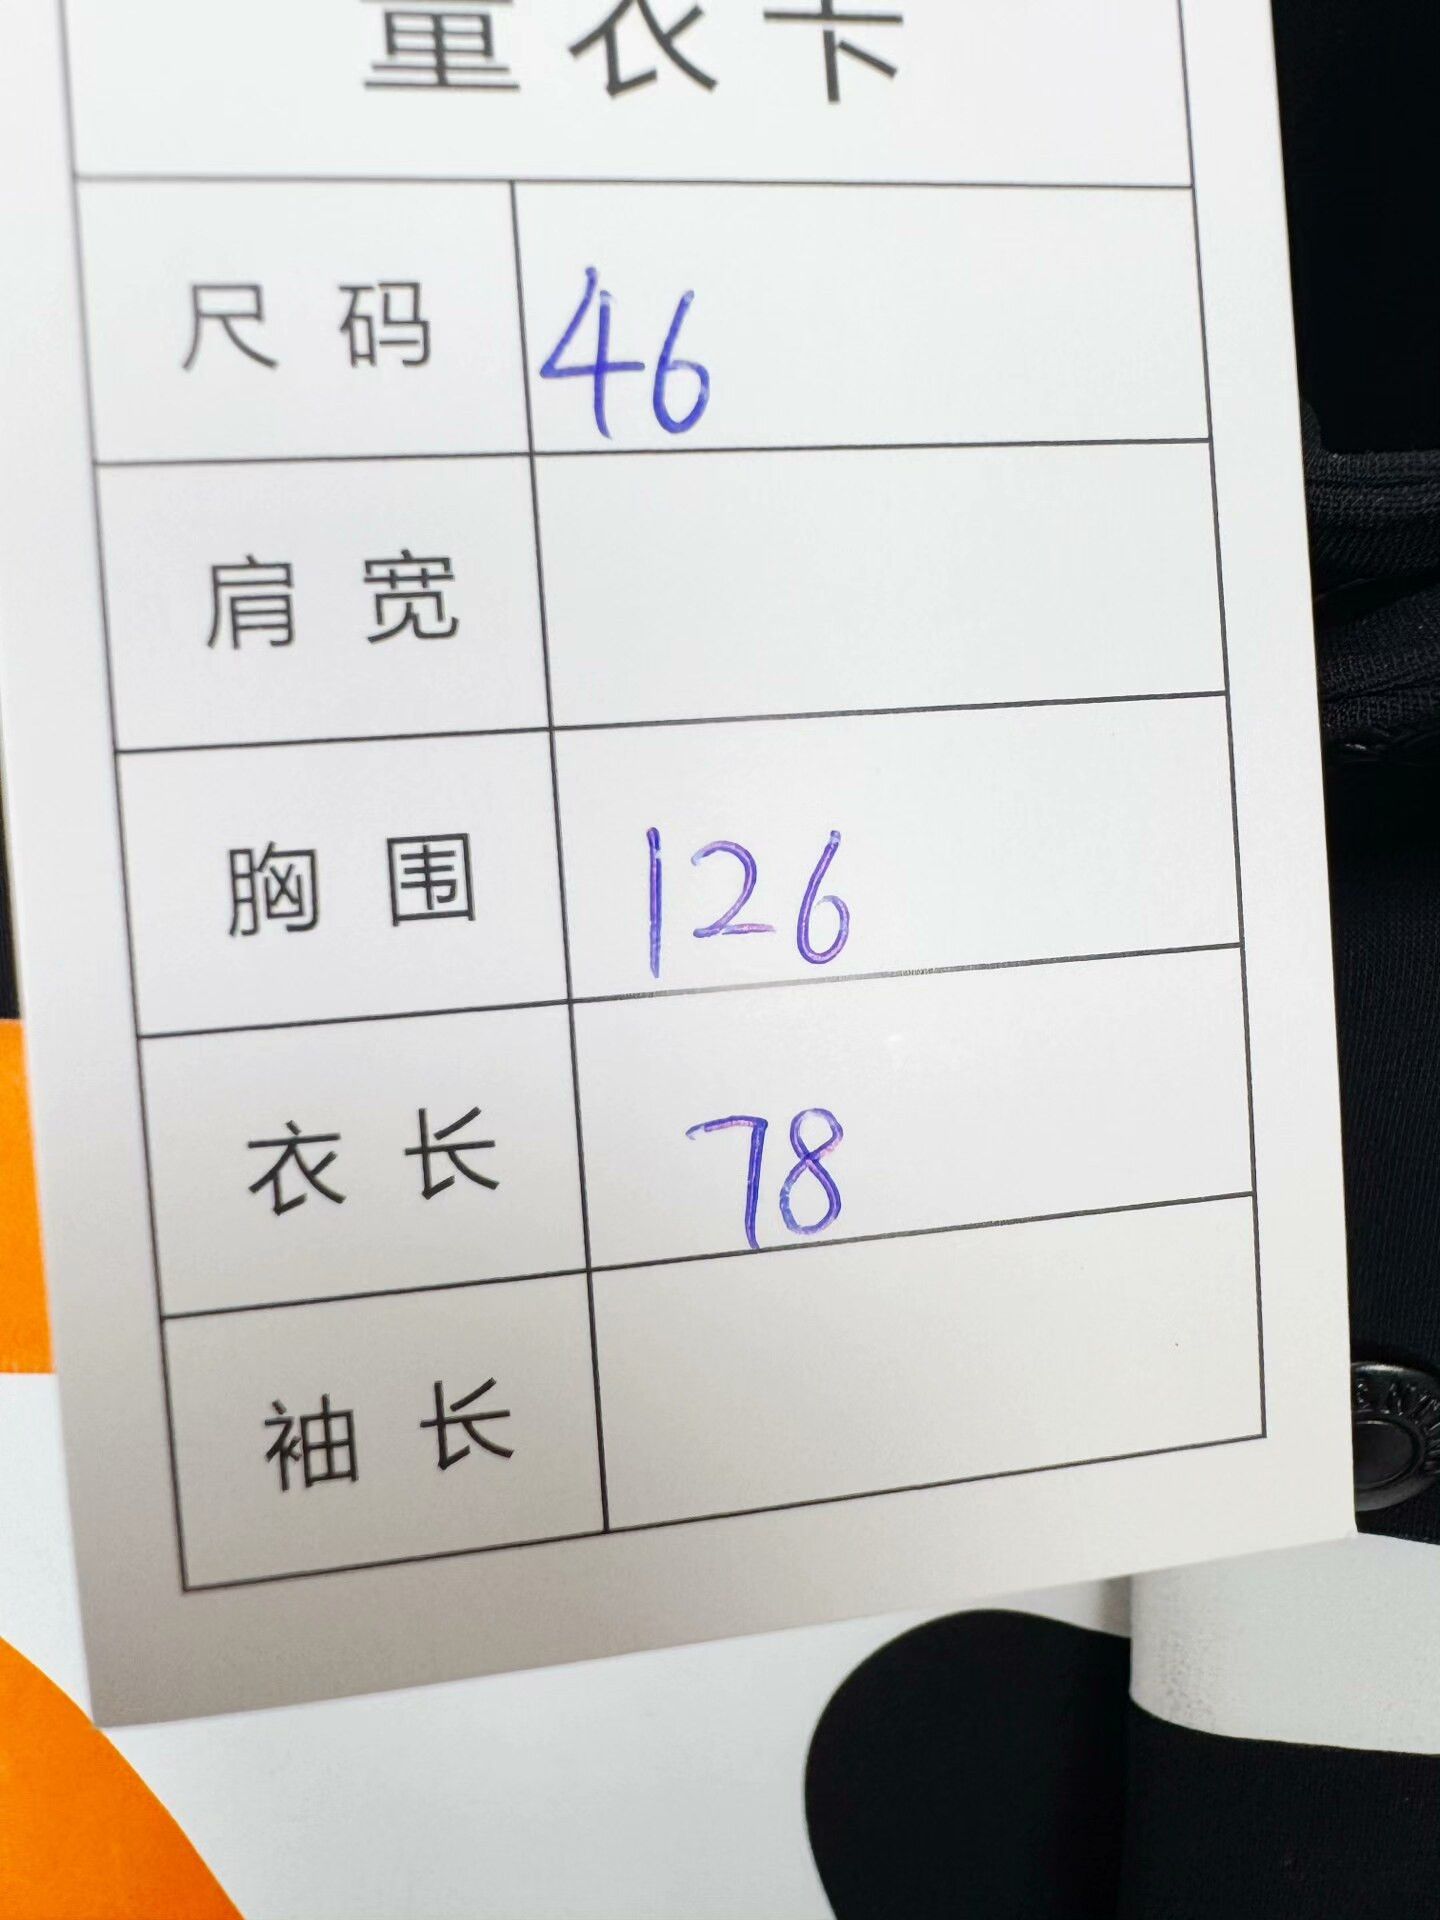 量衣卡
尺码 46
肩宽
胸围 126
衣长 78
袖长